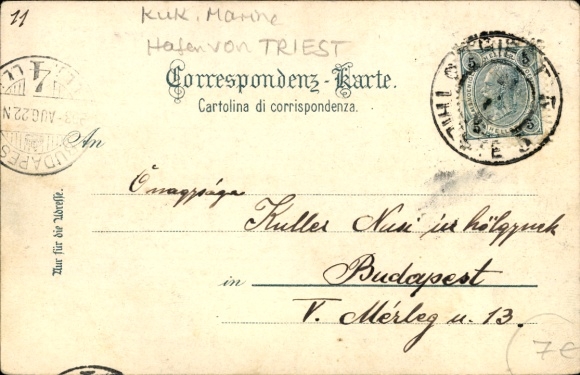 11
K.u.K. Marine
Hafen von TRIEST
Correspondenz-Karte.
Cartolina di corrispondenza.
TRIEST
5 5
BUDAPEST
AUG. 22 N
4
An
Ő nagysága
Kuller Nusi úrhölgynek
in Budapest
V. Mérleg u. 13.
Nur für die Adresse.
7€